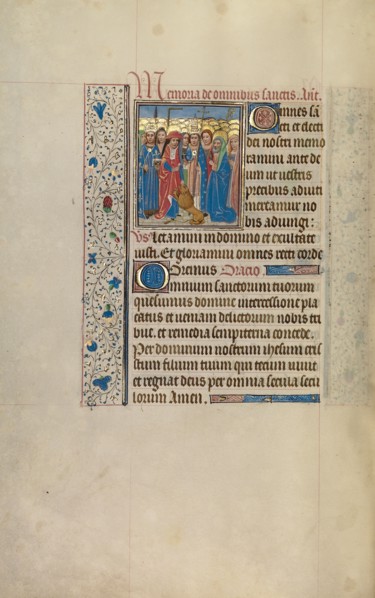 Memoria de omnibus sanctis. Añt.
Omnes sã
cti et electi
dei nostri memo
ramini ante de
um ut vestris
precibus adiuti
mereamur no
bis adiungi:
Vs Letamini in domino et exultate
iusti. Et gloriamini omnes recti corde
Oremus Oracio
Omnium sanctorum tuorum
quesumus domine intercessione pla
catus et veniam delictorum nobis tri
bue. et remedia sempiterna concede.
Per dominum nostrum ihesum cris
tum filium tuum qui tecum vivit
et regnat deus per omnia secula secu
lorum Amen.